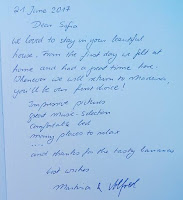 21. June 2017
Dear Sofia
We loved to stay in your beautiful
house. From the first day we felt at
home and had a great time here.
Whenever we will return to
you'll be our first choice!
Important pictures
great Music-Selection
comfortable bed
many places to relax
....
and thanks for the tasty bananas
best wishes
Martina & Alfred